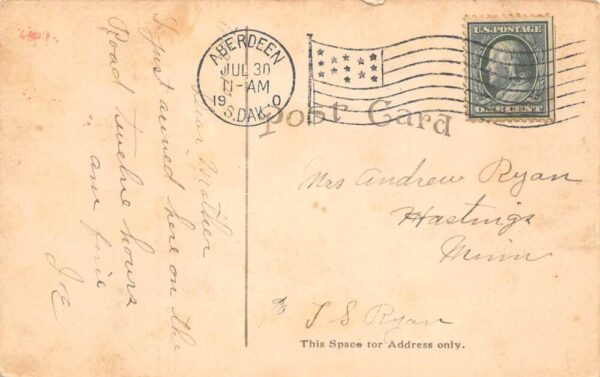 ABERDEEN
JUL 30
11-AM
19 0
S.DAK.
U.S. POSTAGE
ONE CENT
Post Card
Dear Mother
I just arrived here on the
Road twelve hours
am fine
Mrs Andrew Ryan
Hastings
Minn
% T S Ryan
This Space for Address only.